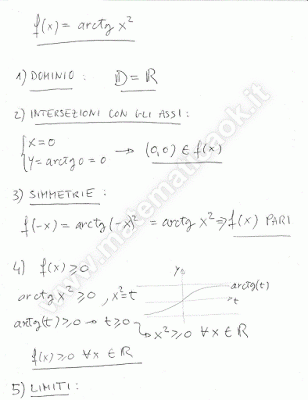 f(x) = arctg x²
1) DOMINIO : D = R
2) INTERSEZIONI CON GLI ASSI :
{ x = 0
{ y = arctg 0 = 0 → (0,0) ∈ f(x)
3) SIMMETRIE :
f(-x) = arctg (-x)² = arctg x² ⇒ f(x) PARI
4) f(x) ≥ 0
y
arctg(t)
t
arctg x² ≥ 0 , x² = t
arctg(t) ≥ 0 → t ≥ 0
↳ x² ≥ 0 ∀x ∈ R
f(x) ≥ 0 ∀x ∈ R
5) LIMITI :
www.matematicaok.it